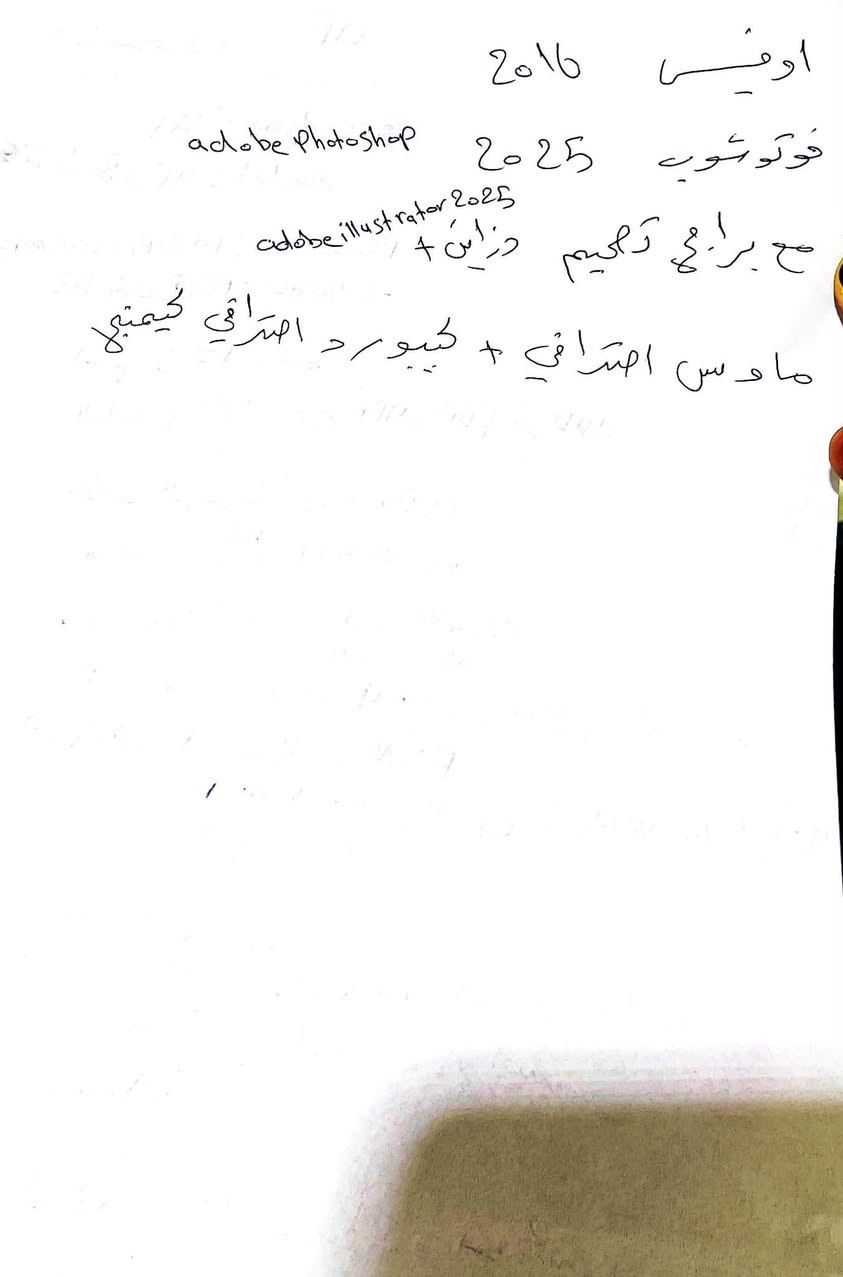 اوفيس 2016
فوتوشوب 2025 adobe Photoshop
مع برامج تصميم دزاين + adobe illustrator 2025
ماوس احترافي + كيبورد احترافي كيمنج